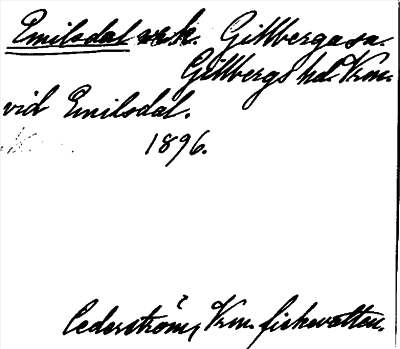 Emilsdal vsk. Gillberga sn.
Gillbergs hd. Vrm.
vid Emilsdal.
1896.
Cederström, Vrm. fiskvatten.